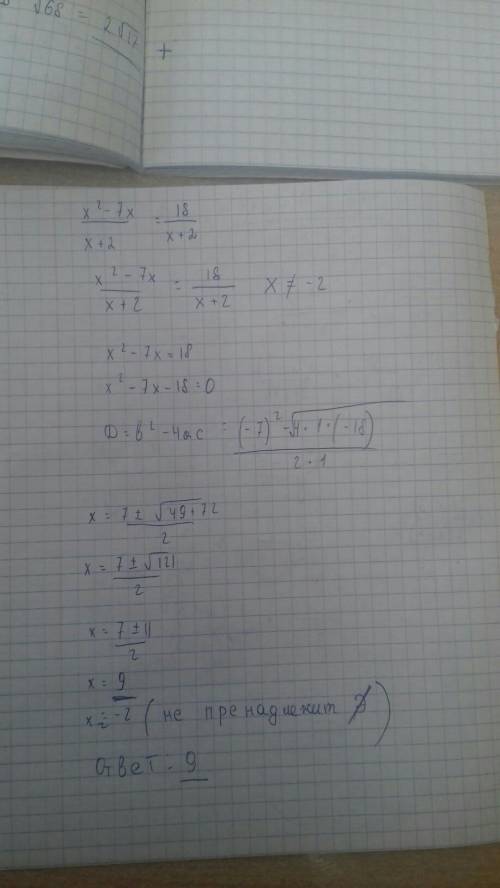 √68 = 2√17 +
x² - 7x / x + 2 = 18 / x + 2
x² - 7x / x + 2 = 18 / x + 2 x ≠ -2
x² - 7x = 18
x² - 7x - 18 = 0
D = b² - 4ac = (-7)² - √4 · 1 · (-18) / 2 · 1
x = 7 ± √49 + 72 / 2
x = 7 ± √121 / 2
x = 7 ± 11 / 2
x = 9
x = -2 (не пренадлежит )
Ответ - 9